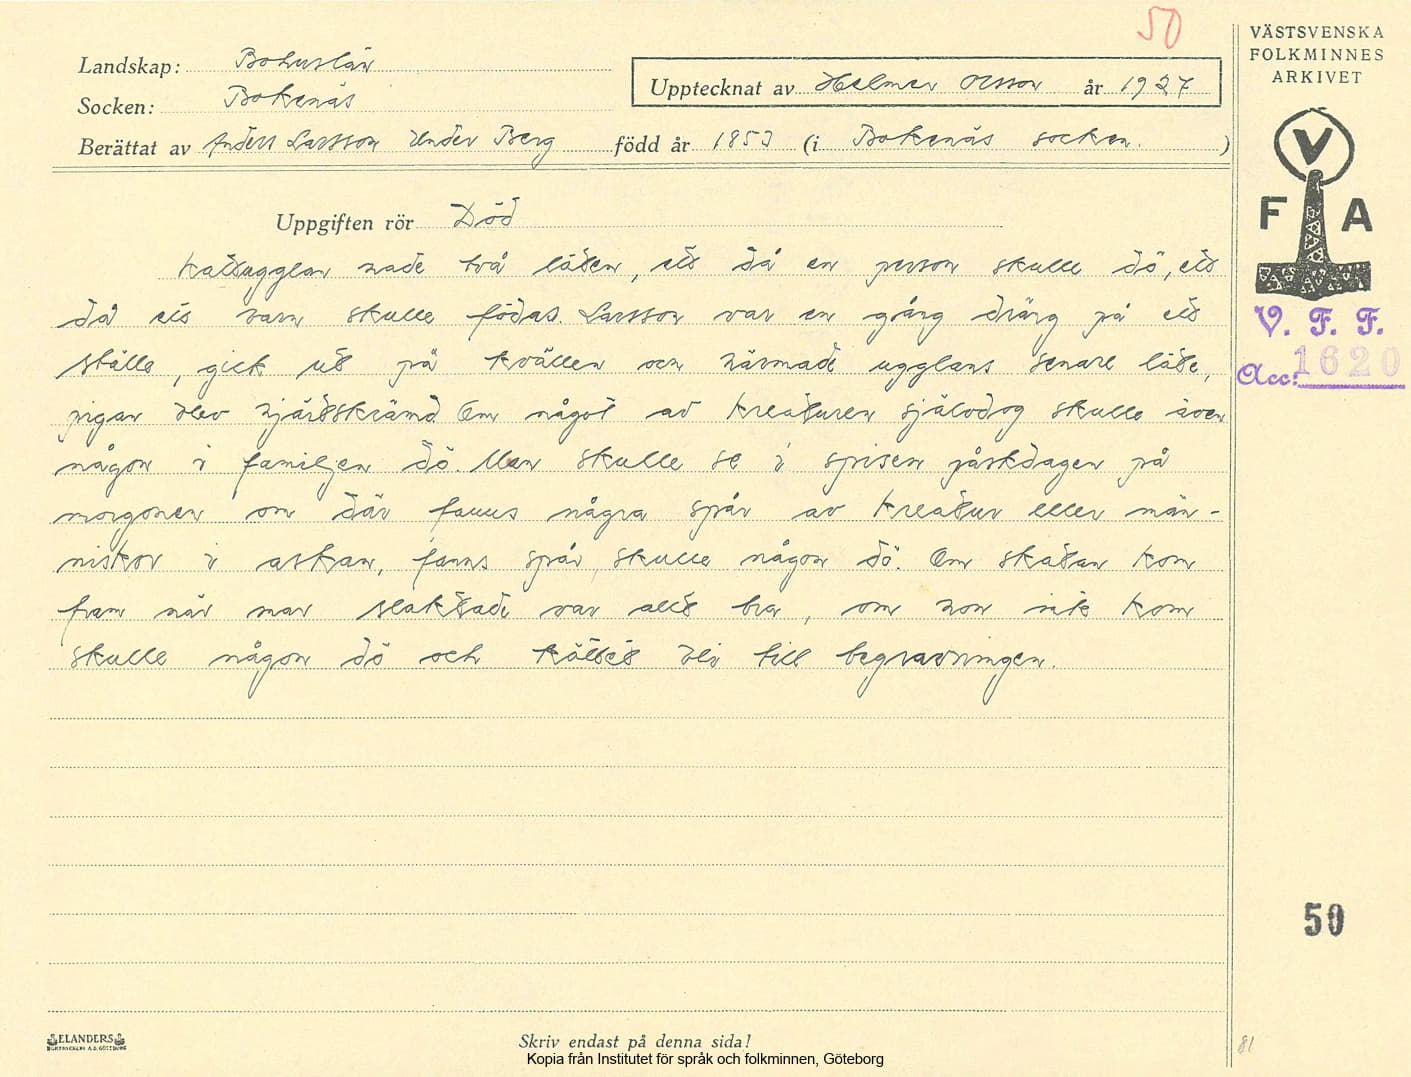 50
VÄSTSVENSKA
FOLKMINNES
ARKIVET
Landskap: Bohuslän
Socken: Bokenäs
Upptecknat av Helmer Olsson år 1927
Berättat av Anders Larsson Under Berg född år 1853 (i Bokenäs socken.)
V
F A
Uppgiften rör Död
Kattugglan hade två läten, ett då en person skulle dö, ett
då ett barn skulle födas. Larsson var en gång dräng på ett
ställe, gick ut på kvällen och härmade ugglans senare läte,
pigan blev hjärtskrämd. Om något av kreaturen självdog skulle även
någon i familjen dö. Man skulle se i spisen påskdagen på
morgonen om där fanns några spår av kreatur eller män-
niskor i askan, fanns spår, skulle någon dö. Om skatan kom
fram när man slaktade var allt bra, om hon inte kom
skulle någon dö och köttet bli till begravningen.
V. F. F.
Acc: 1620
50
ELANDERS
Skriv endast på denna sida!
Kopia från Institutet för språk och folkminnen, Göteborg
81